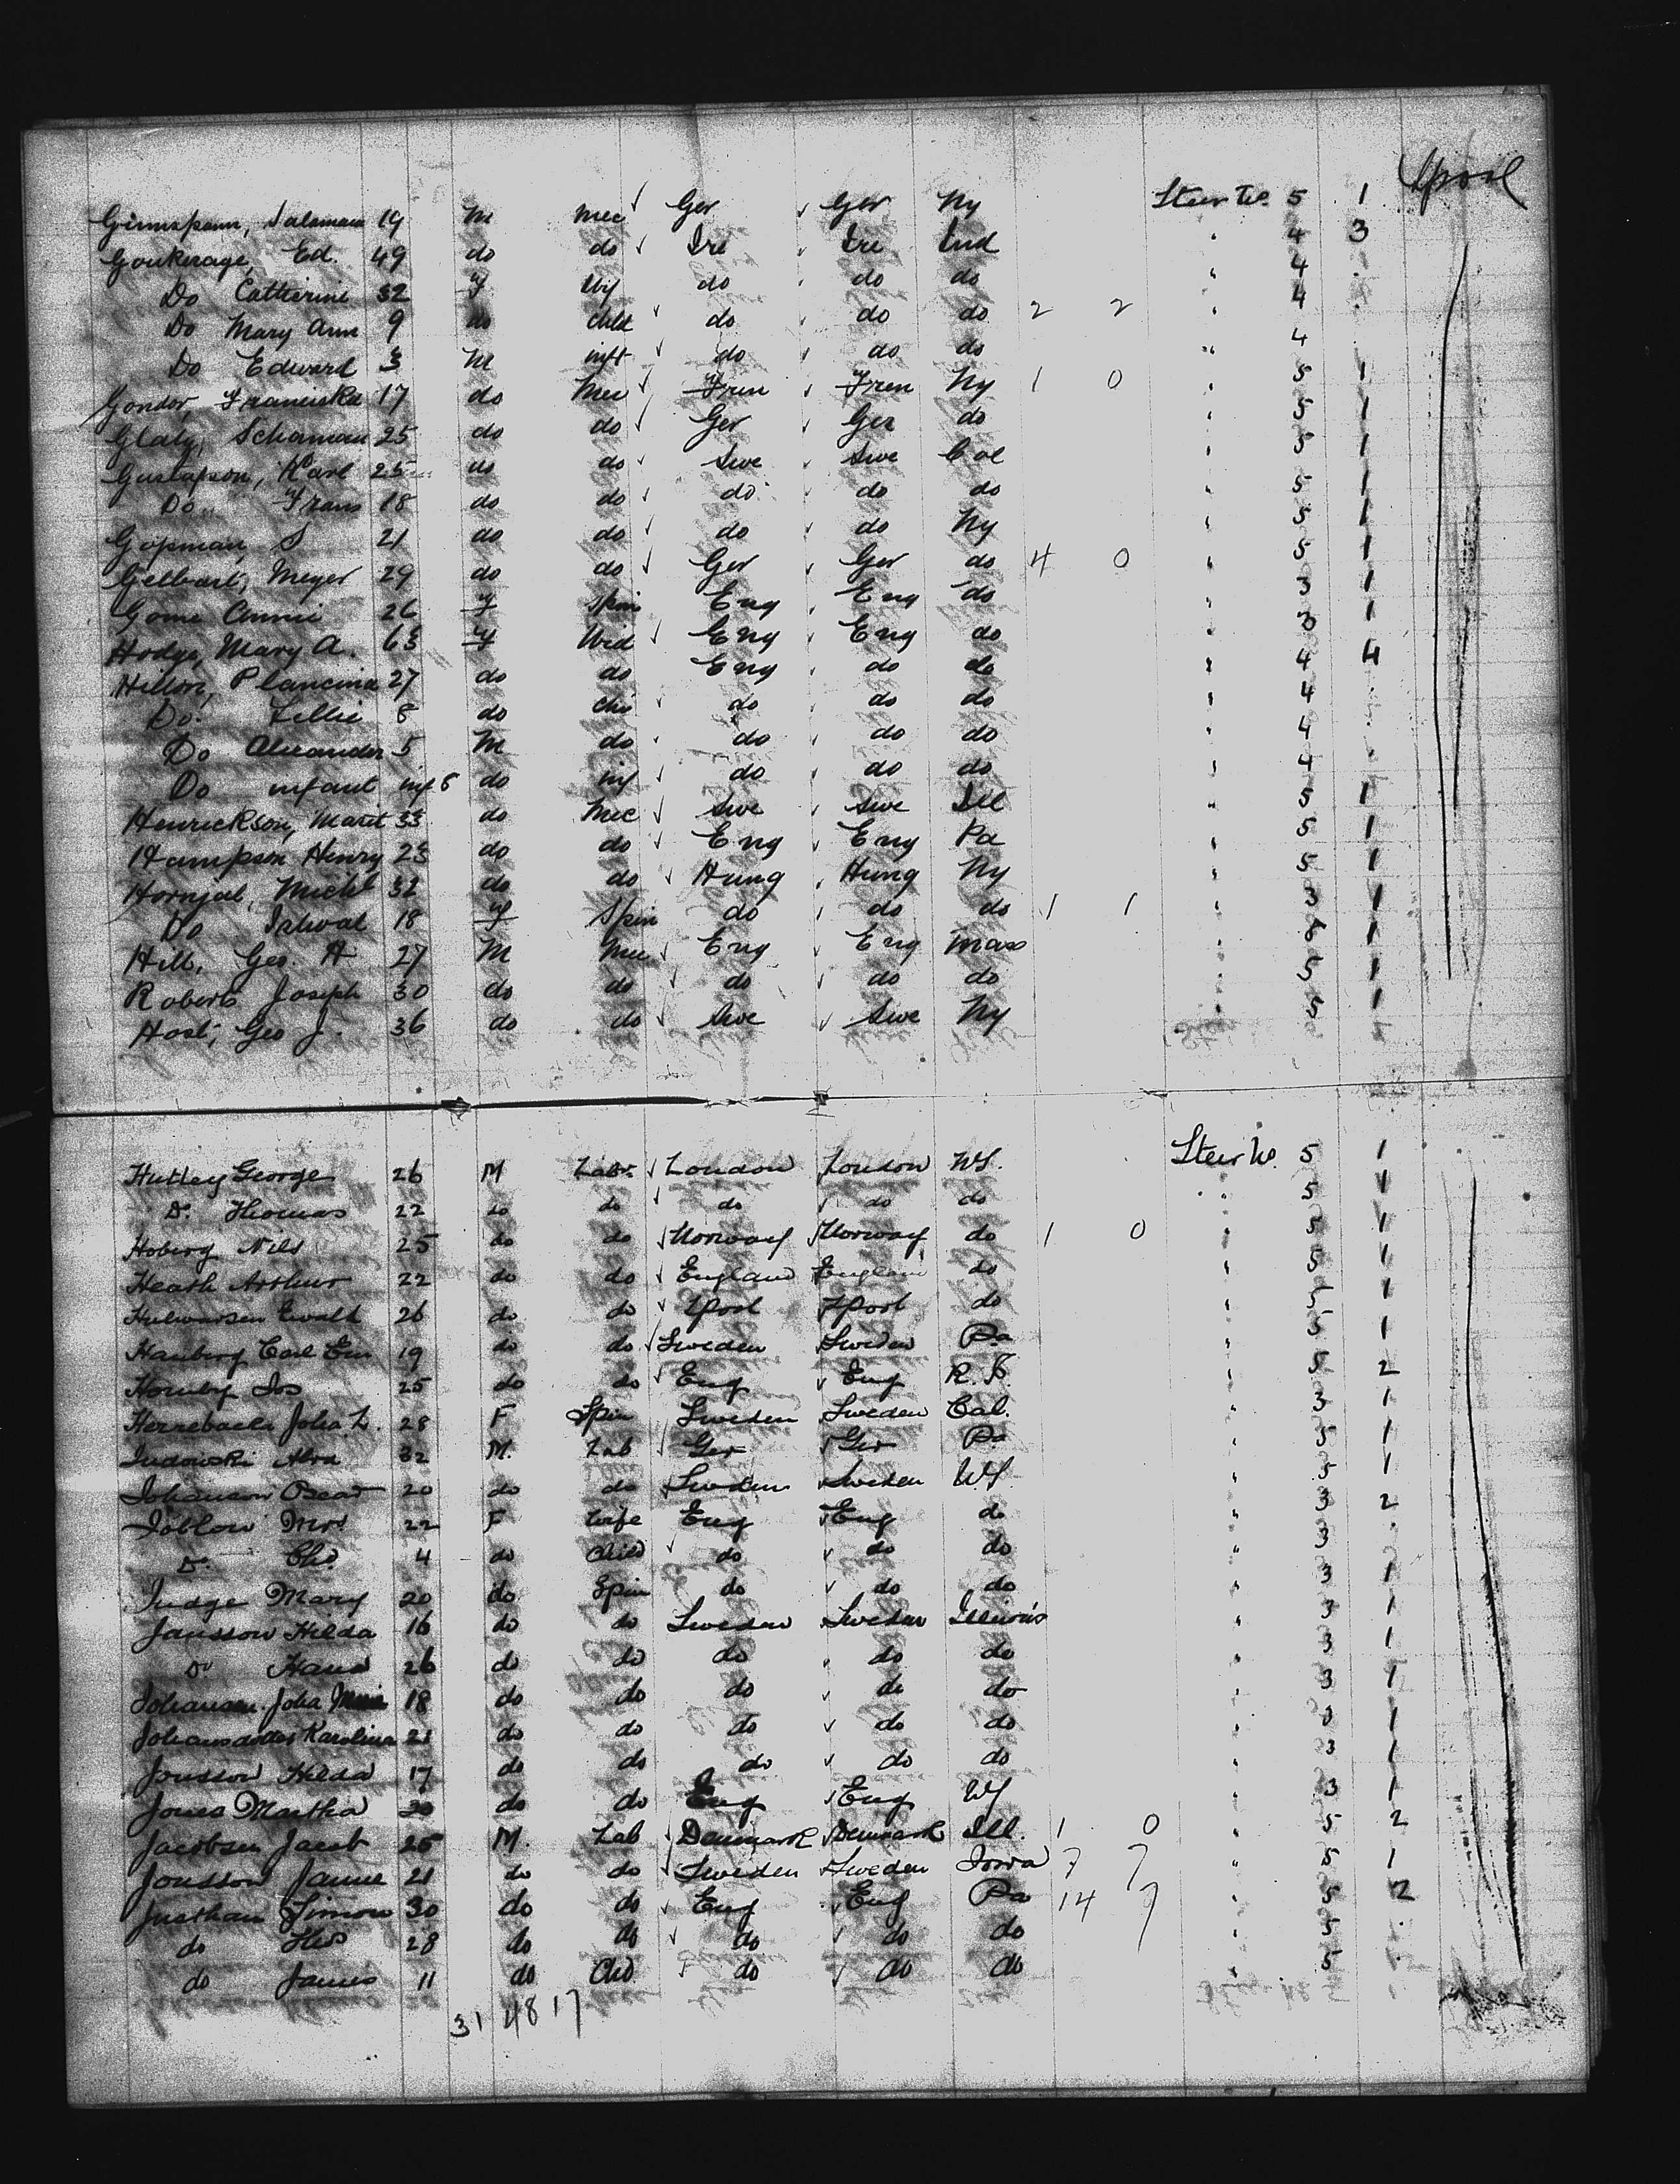 Lpool
Salaman 19 M Mec Ger Ger Ny Steer 5 1
Gonkerage, Ed. 49 do do Ire Ire Ind " 4 3
Do Catherine 32 F Wif do do do " 4
Do Mary Ann 9 do child do do do 2 2 " 4
Do Edward 3 M inft do do do " 4
Gondor, Franciska 17 do Mec Fren Fren Ny 1 0 " 5 1
25 do do Ger Ger do " 5 1
Gustafson, Karl 25 do do Swe Swe Col " 5 1
Do Frans 18 do do do do do " 5 1
Gopman, S 21 do do do do Ny " 5 1
Gelbart, Meyer 29 do do Ger Ger do 4 0 " 5 1
Gome Annie 26 F Spin Eng Eng do " 3 1
Hodge, Mary A. 63 F Wid Eng Eng do " 3 1
Hilton, 27 do do Eng do do " 4 4
Do. Lillie 8 do chi do do do " 4
Do Alexander 5 M do do do do " 4
Do infant inf 8 do inf do do do " 4
Henrickson, Marit 33 do Mec Swe Swe Ill " 5 1
Hampson Henry 23 do do Eng Eng Pa " 5 1
Hornjal, Michl 32 do do Hung Hung Ny " 5 1
Do 18 F Spin do do do 1 1 " 3 1
Hill, Geo. H 27 M Mec Eng Eng Mass " 1
Roberts Joseph 30 do do do do do " 5 1
Host, Geo J. 36 do do Swe Swe Ny " 5 1
Hutley George 26 M Labr London London NY. Steer 5 1
Do Thomas 22 do do do do do " 5 1
Hoberg Nils 25 do do Norway Norway do 1 0 " 5 1
Heath Arthur 22 do do England England do " 5 1
Ewalt 26 do do Lpool Lpool do " 5 1
Hanberg Carl Em 19 do do Sweden Sweden Pa " 5 1
Hornby Jos 25 do do Eng Eng R.I. " 5 2
Julia L. 28 F Spin Sweden Sweden Cal. " 3 1
Judowski 32 M. Lab Ger Ger Pa " 5 1
Johanson Oscar 20 do do Sweden Sweden NY. " 5 1
Joblow Mrs 22 F Wife Eng Eng do " 3 2
Do Chd 4 do Child do do do " 3
Judge Mary 20 do Spin do do do " 3 1
Jansson Hilda 16 do do Sweden Sweden Illinois " 3 1
Do 26 do do do do do " 3 1
Johansen. Joha 18 do do do do do " 3 1
Johansdotter Karolina 21 do do do do do " 3 1
Jonsson Hilda 17 do do do do do " 3 1
Jones Martha 30 do do Eng Eng NY " 3 1
Jacobsen Jacob 25 M. Lab Denmark Denmark Ill. 1 0 " 5 2
Jonsson Janne 21 do do Sweden Sweden Iowa 7 7 " 5 1
Simon 30 do do Eng Eng Pa 14 7 " 5 2
do 28 do do do do do " 5
do James 11 do Chd do do do " 5
31 48 17